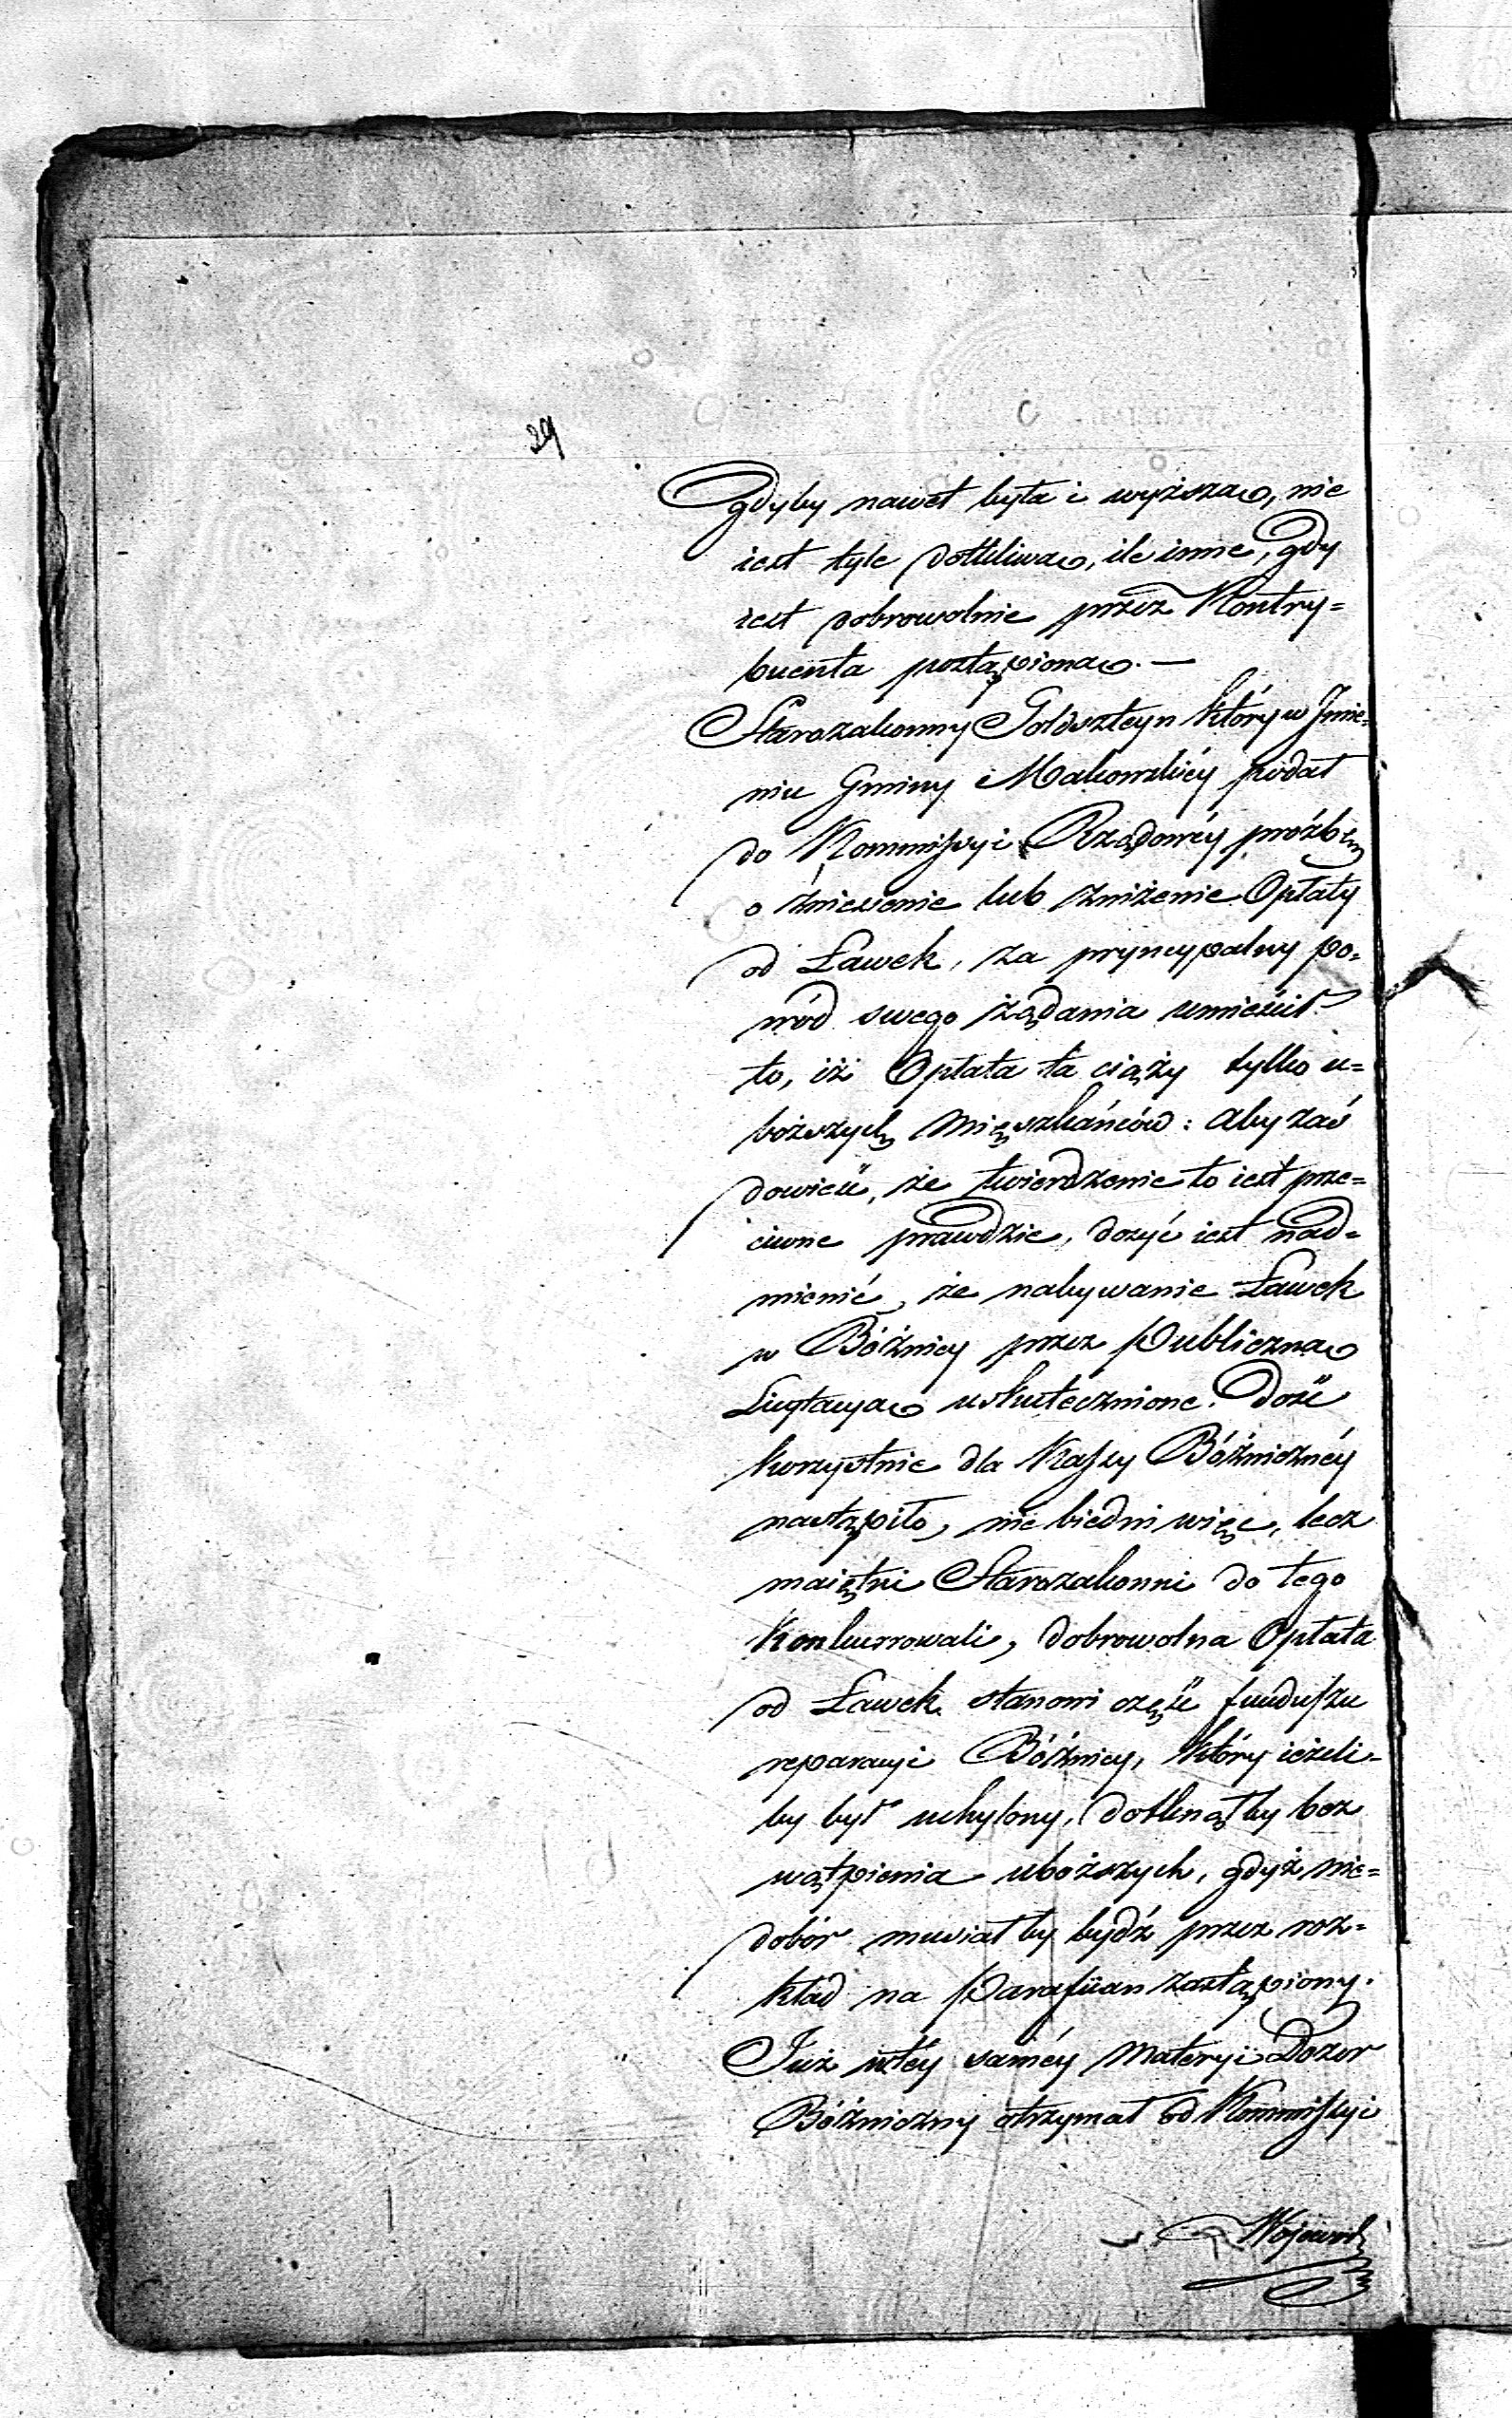 29
gdyby nawet była i wyższa, nie
iest tyle dotkliwa, ile inne, gdy
iest dobrowolnie przez Kontry=
buenta postąpiona. —
Starozakonny Goldszteyn który w Jmie=
niu Gminy Makowskiéy podał
do Kommissyi Rządowéy proźbę
o zniesienie lub zniżenie Opłaty
od Ławek, za pryncypalny po=
wód swego żądania umieścił
to, iż Opłata ta ciąży tylko u=
boższych Mięszkańców: aby zaś
dowieść, że twierdzenie to iest prze=
ciwne prawdzie, dosyć iest nad=
mienić, że nabywanie Ławek
w Bóżnicy przez Publiczną
Licytacyą uskutecznione. Dość
korzystnie dla Kassy Bóźnicznéy
nastąpiło, nie biedni więc, lecz
maiętni Starozakonni do tego
Konkurrowali, dobrowolna Opłata
od Ławek stanowi część funduszu
reparacyi Bóżnicy, który ieżeli=
by był uchylony, dotknąłby bez
wątpienia uboższych, gdyż nie=
dobór musiałby bydź przez roz=
kład na Parafiian zastąpiony.
Już w téy saméy Materyi Dozor
Bóżniczny otrzymał od Kommissyi
Wojewod